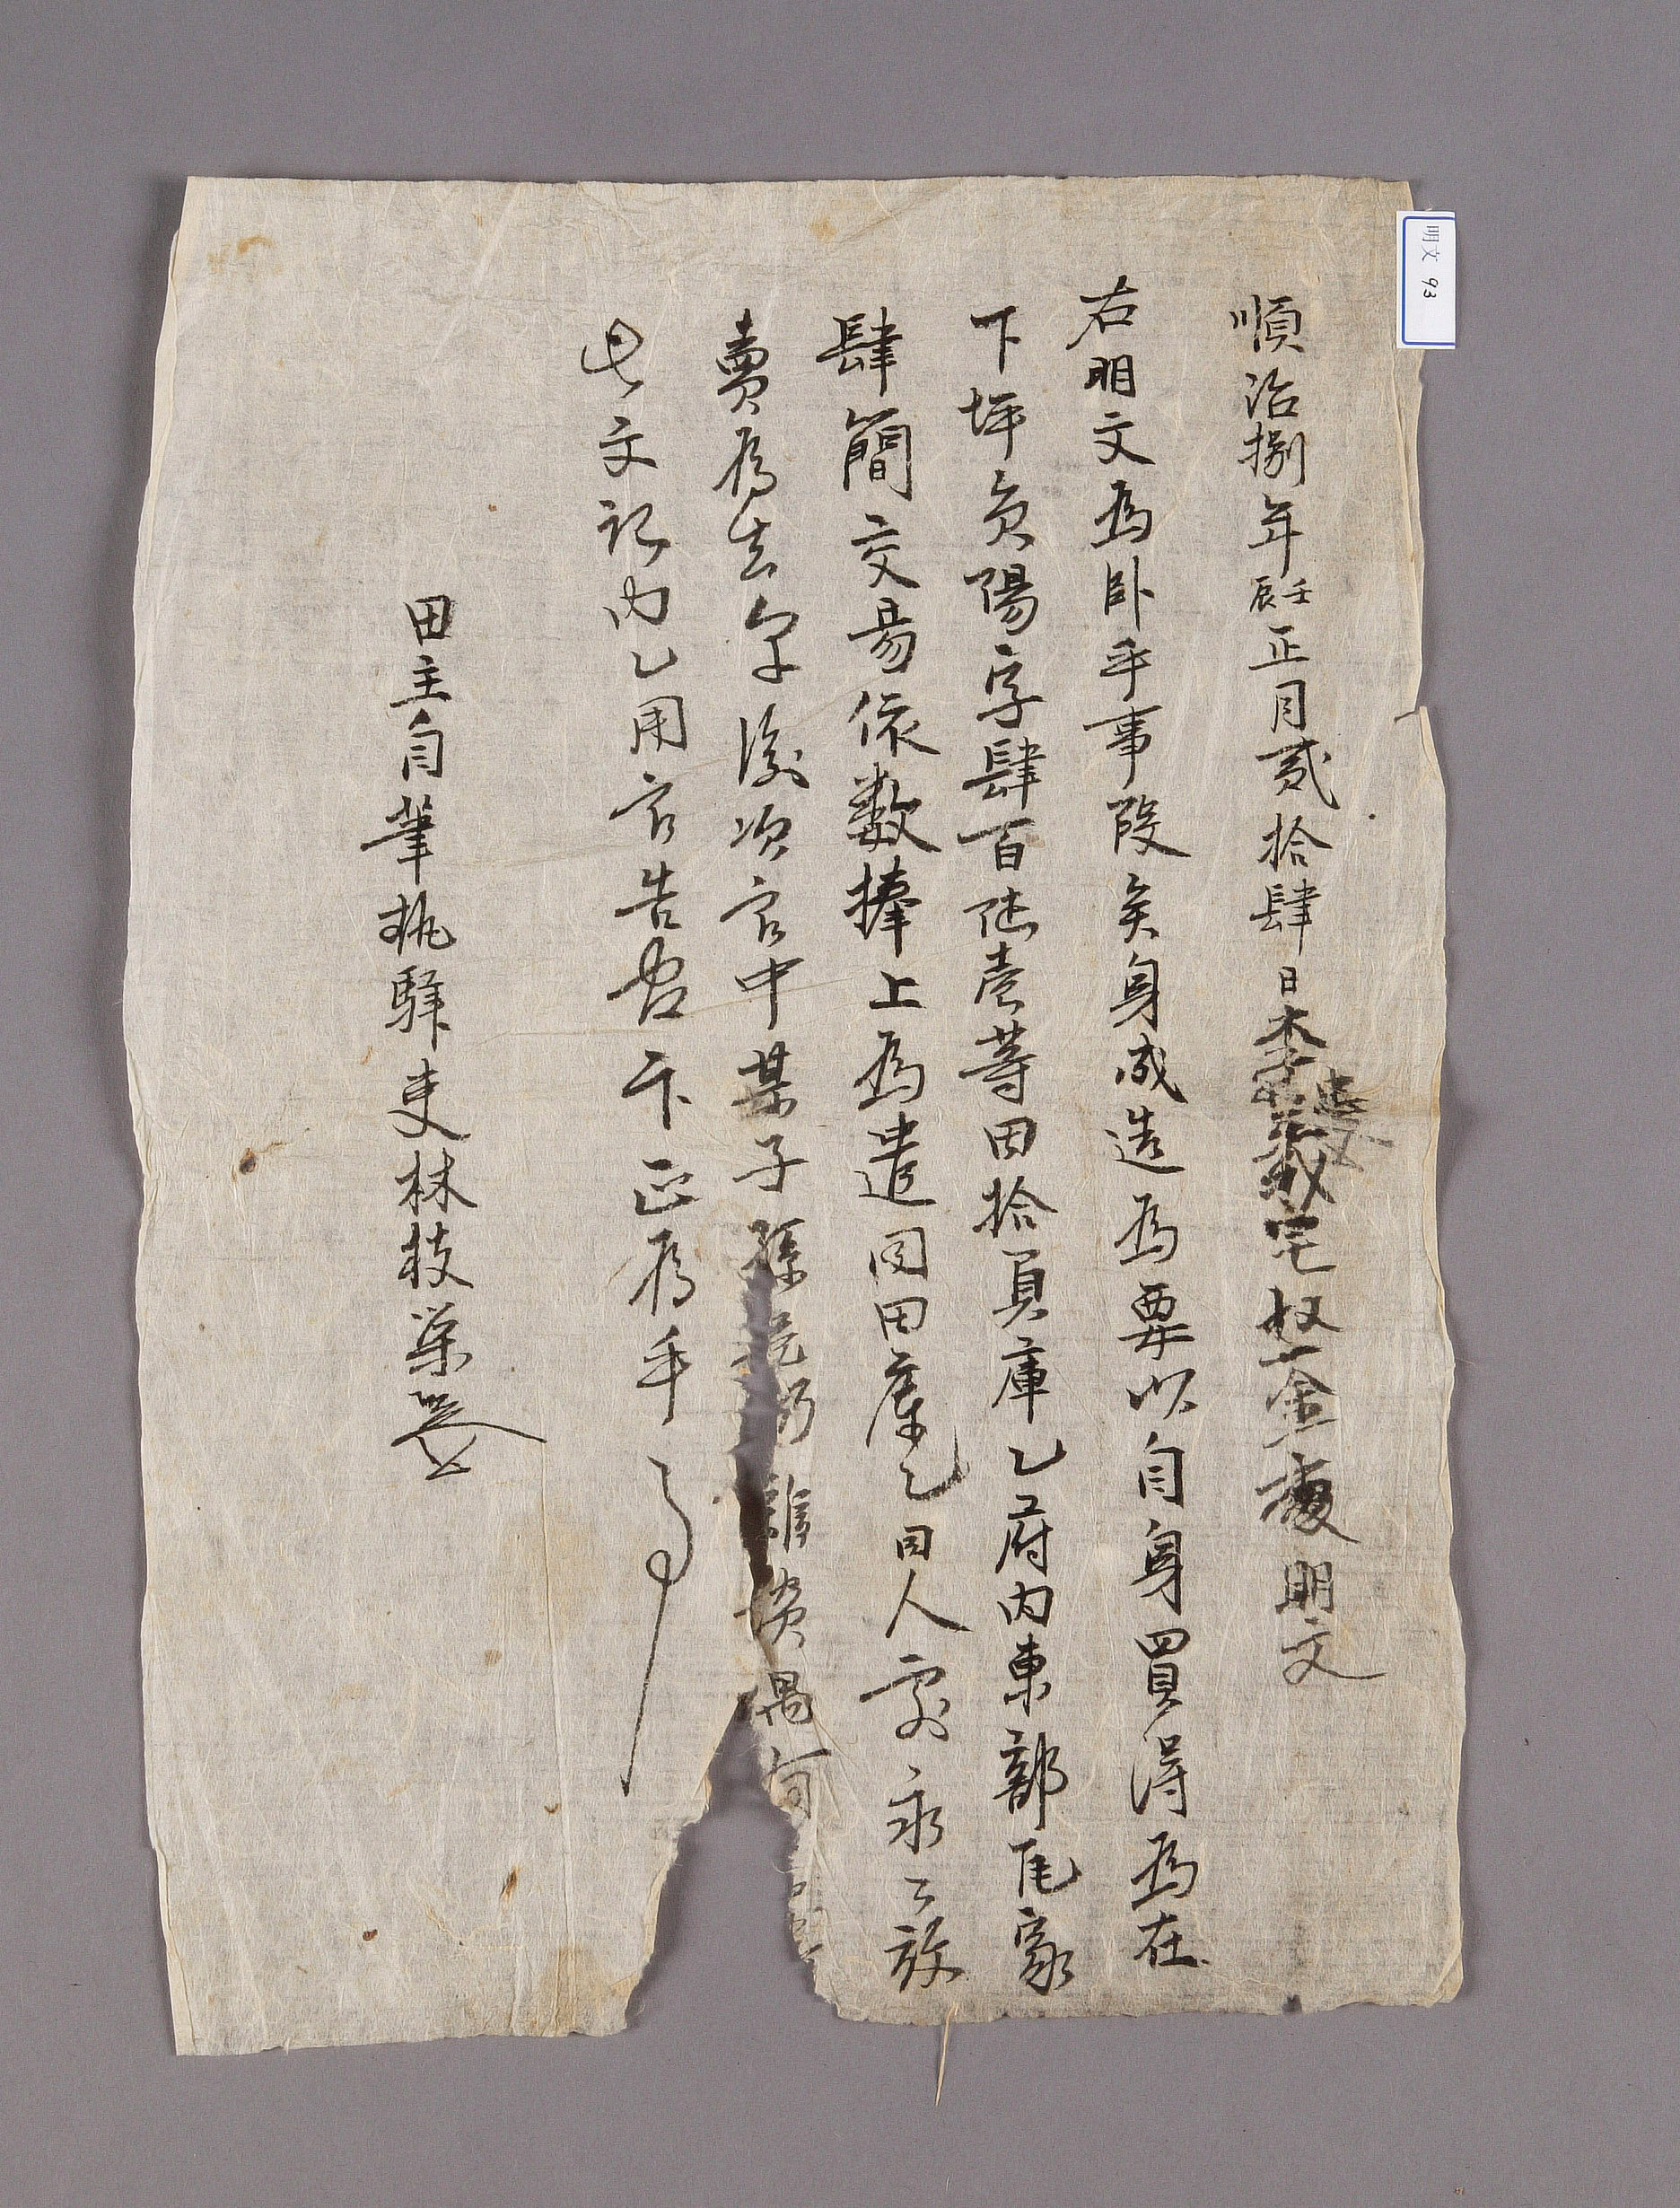 順治捌年壬辰正月貳拾肆日李忠義宅奴金復明文
右明文爲臥乎事段矣身成造爲要以自身買得爲在
下坪員陽字肆百陸壹等田拾負庫乙府内東部瓦家
肆簡交易依數捧上爲遣同田庫乙同人處永〻放
賣爲去乎後次官中某子孫 雜談爲
此文記内乙用官告官卞正爲乎事
田主自筆執驛吏林枝榮
明文 93